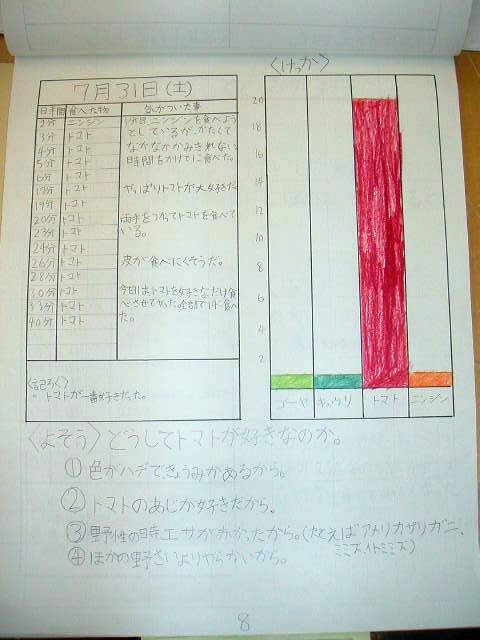 7月31日(土)
時間 食べた物 気がついた事
2分 ニンジン
3分 トマト
4分 トマト
5分 トマト
6分 トマト
17分 トマト
19分 トマト
20分 トマト
23分 トマト
24分 トマト
26分 トマト
28分 トマト
30分 トマト
33分 トマト
40分 トマト
1分目ニンジンを食べよう
としているが、かたくて
なかなかかみきれない
時間をかけて食べた。
やっぱりトマトが大好きだ。
両手をつかってトマトを食べて
いる。
皮が食べにくそうだ。
今日はトマトを好きなだけ食
べさせてやった。全部で
た。
〈記ろく〉
・トマトが一番好きだった。
〈けっか〉
20
18
16
14
12
10
8
6
4
2
ゴーヤ キュウリ トマト ニンジン
〈よそう〉どうしてトマトが好きなのか。
①色がハデで、きょうみがあるから。
②トマトのあじが好きだから。
③野性の時エサがあかかったから。(たとえばアメリカザリガニ、
ミミズ、イトミミズ)
④ほかの野さいよりやらかいから。
8